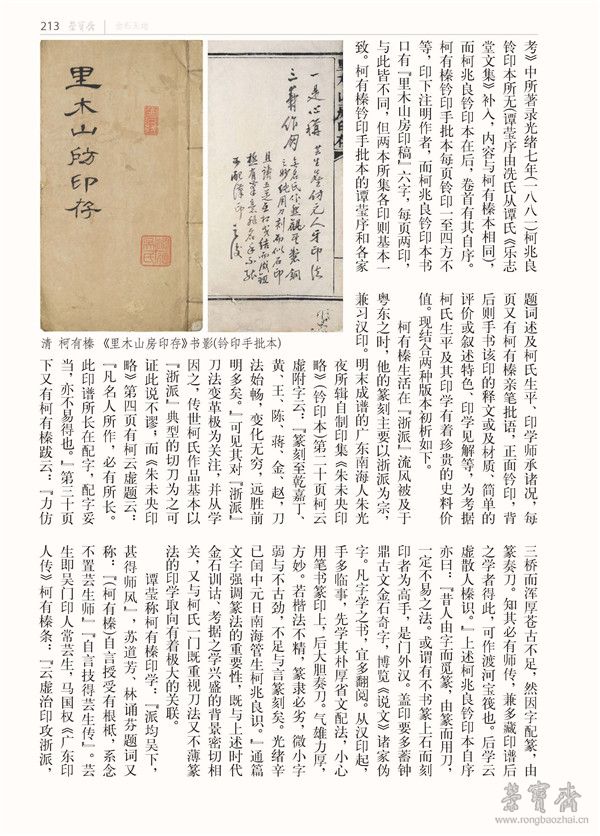 213 荣宝斋 金石天地
考》中所著录光绪七年一八八一)柯兆良
钤印本所无(谭莹序由冼氏从谭氏《乐志
堂文集》补入,内容与柯有榛本相同),
而柯兆良钤印本在后,卷首有其自序。
柯有榛钤印手批本每页钤印一至四方不
等,印下注明作者,而柯兆良钤印本书
口有『里木山房印稿』六字,每页两印,
与此皆不同,但两本所集各印则基本一
致。柯有榛钤印手批本的谭莹序和各家
里木山房印存
里木山房印存
清 柯有榛 《里木山房印存》书影(钤印手批本)
题词述及柯氏生平、印学师承诸况,每
页又有柯有榛亲笔批语,正面钤印,背
后则手书该印的释文或及材质、简单的
评价或叙述特色、印学见解等,为考据
柯氏生平及其印学有着珍贵的史料价
值。现结合两种版本初析如下。
柯有榛生活在『浙派』流风被及于
粤东之时,他的篆刻主要以浙派为宗,
兼习汉印。明末成谱的广东南海人朱光
夜所辑自制印集《朱未央印
略》(钤印本)第二十页柯云
虚附字云:『篆刻至乾嘉丁、
黄、王、陈、蒋、金、赵,刀
法始畅,变化无穷,远胜前
明多矣。』可见其对『浙派』
刀法变革极为关注,并从学
因之,传世柯氏作品基本以
『浙派』典型的切刀为之可
证此说不谬;而《朱未央印
略》第四页有柯云虚题云:
『凡名人所作,必有所长。
此印谱所长在配字,配字妥
当,亦不易得也。』第三十页
下又有柯有榛跋云:『力仿
三桥而浑厚苍古不足,然因字配篆,由
篆奏刀。知其必有师传,兼多藏印谱后
之学者得此,可作渡河宝筏也。后学云
虚散人榛识。』上述柯兆良钤印本自序
亦曰:『昔人由字而觅篆,由篆而用刀,
一定不易之法。或谓有不书篆上石而刻
印者为高手,是门外汉。盖印要多蓄钟
鼎古文金石奇字,博览《说文》诸家伪
字。凡字学之书,宜多翻阅。从汉印起,
手多临事,先学其朴厚省文配法,小心
用笔书篆印上,后大胆奏刀。气雄力厚,
方妙。若楷法不精,篆隶必劣,微小字
弱与不古劲,不足与言篆刻矣。光绪辛
已闰中元日南海管生柯兆良识。』通篇
文字强调篆法的重要性,既与上述时代
金石训诂、考据之学兴盛的背景密切相
关,又与柯氏一门既重视刀法又不薄篆
法的印学取向有着极大的关联。
谭莹称柯有榛印学:『派均吴下,
甚得师风』,苏道芳、林诵芬题词又
称:『(柯有榛)自言授受有根柢,系念
不置芸生师』『自言技得芸生传』。芸
生即吴门印人常芸生,马国权《广东印
人传》柯有榛条:『云虚治印攻浙派,
荣宝斋
www.rongbaozhai.cn